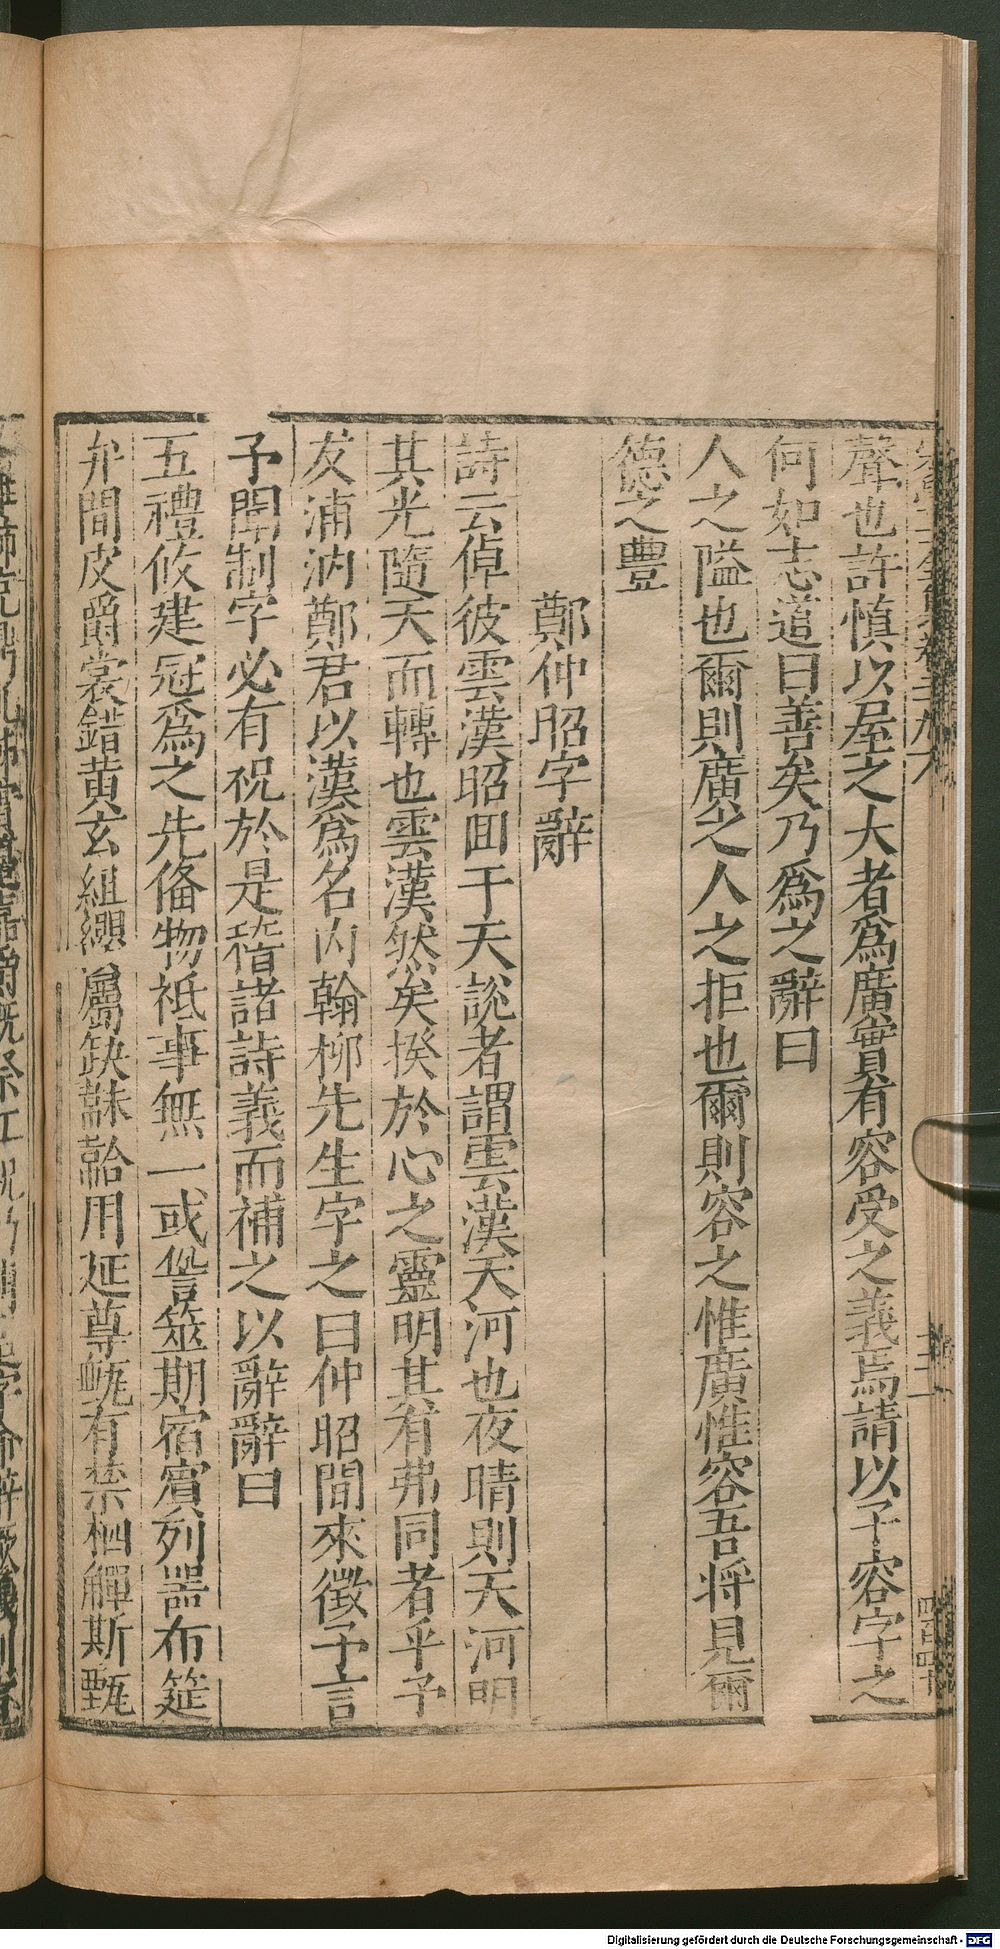 聲也許慎以屋之大者爲廣實有容受之義焉請以子容字之
何如志道曰善矣乃爲之辭曰
人之隘也爾則廣之人之拒也爾則容之惟廣惟容吾将見爾
德之豐
鄭仲昭字辭
詩云倬彼雲漢昭回于天説者謂雲漢天河也夜晴則天河明
其光隨天而轉也雲漢然矣揆於心之靈明其有弗同者乎予
友浦汭鄭君以漢爲名内翰栁先生字之曰仲昭間來徵予言
予聞制字必有祝於是稽諸詩義而補之以辭辭曰
五禮攸建冠爲之先俻物祗事無一或諐筮期宿賓列噐布筵
弁間皮爵裳錯黄玄組纓屬缺韎韐用延尊甒有禁栖觶斯甄
Digitalisierung gefördert durch die Deutsche Forschungsgemeinschaft - DFG